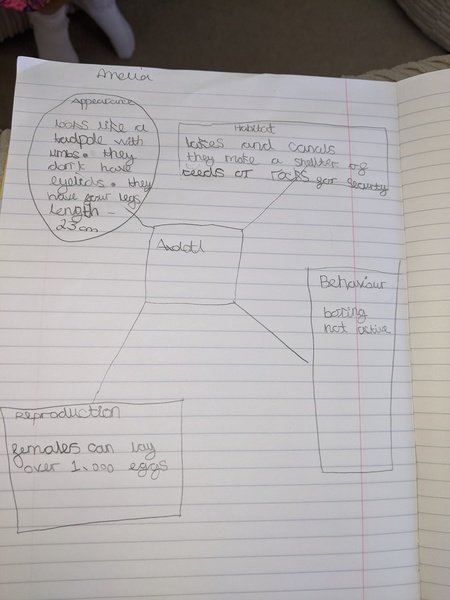 Amelia
Appearance
looks like a
tadpole with
limbs. they
don't have
eyelids. they
have four legs
Length -
23cm
Habitat
lakes and canals
they make a shelter of
reeds or rocks for security
Axolotl
Behaviour
boring
not active
Reproduction
females can lay
over 1,000 eggs